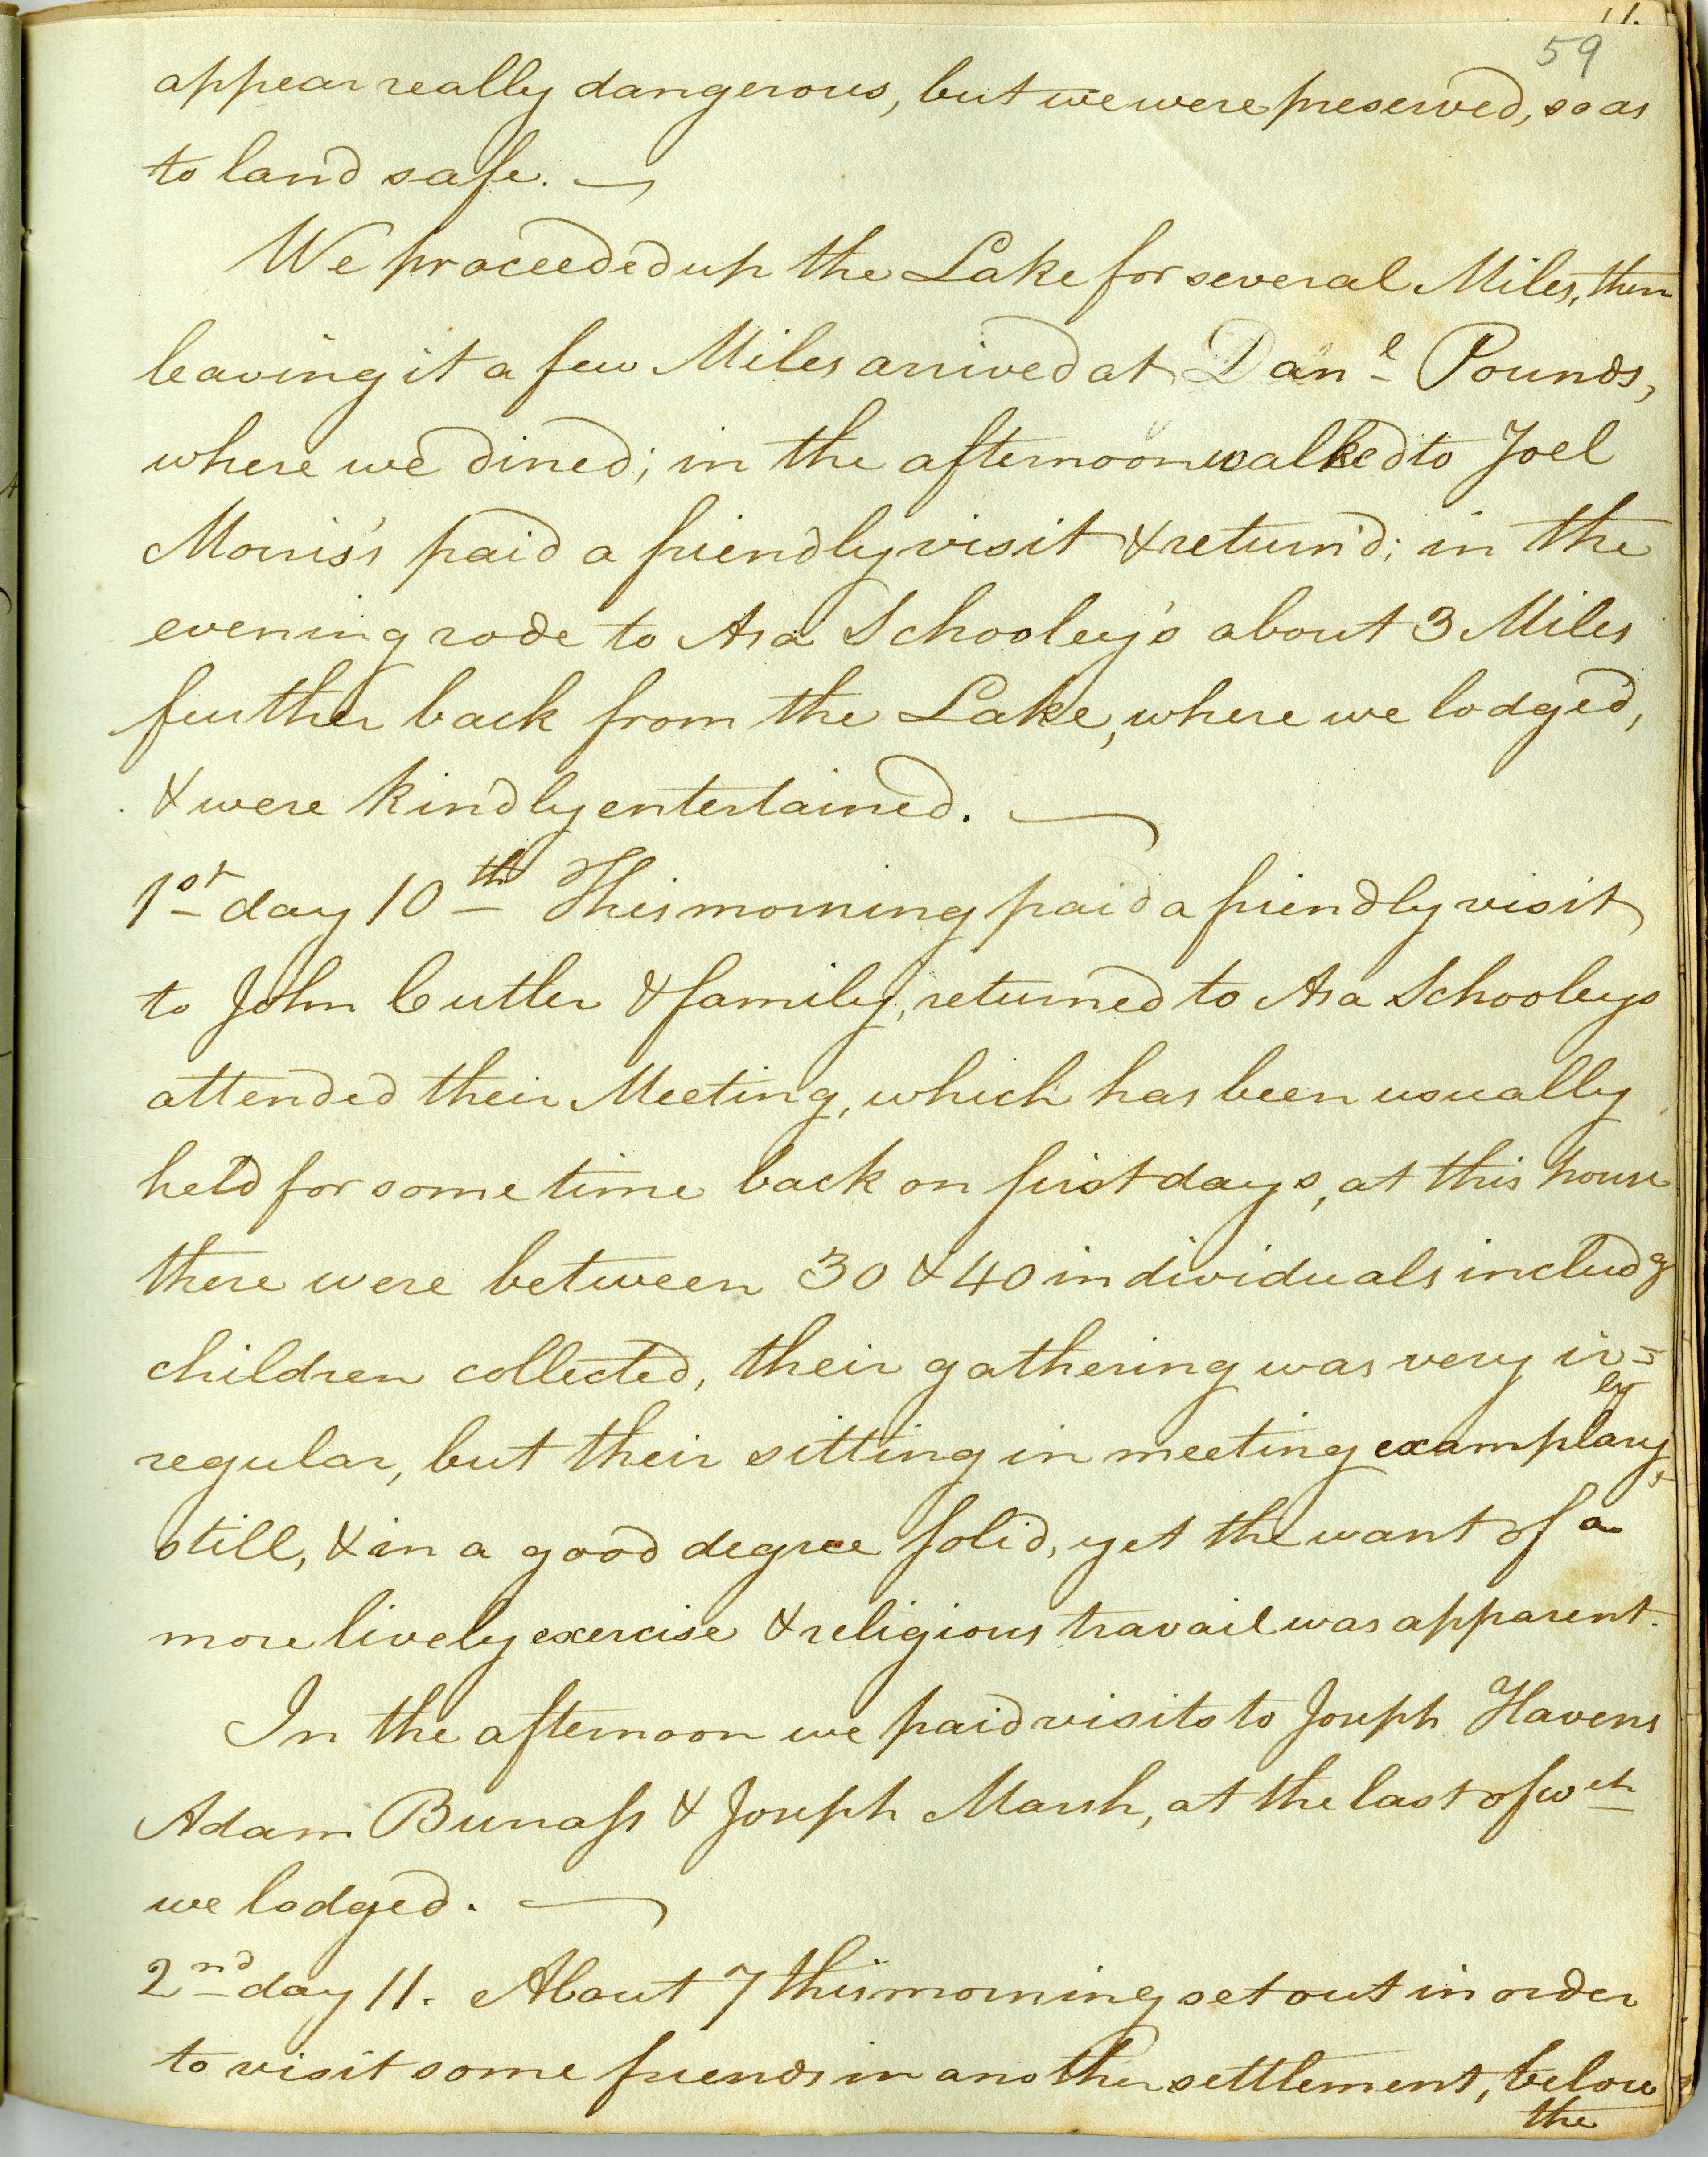 11.
59
appear really dangerous, but we were preserved, so as
to land safe. —
We proceeded up the Lake for several Miles, then
leaving it a few Miles arrived at Danl Pounds,
where we dined; in the afternoon walked to Joel
Morris's paid a friendly visit & return'd; in the
evening rode to Asa Schooley's about 3 Miles
further back from the Lake, where we lodged,
& were kindly entertained. —
1st day 10th This morning paid a friendly visit
to John Cutler & family, returned to Asa Schooleys
attended their Meeting, which has been usually
held for some time back on first days, at this house
there were between 30 & 40 individuals includg
children collected, their gathering was very ir=
regular, but their sitting in meeting examplary,
ly
still, & in a good degree solid, yet the want of a
more lively exercise & religious travail was apparent.
In the afternoon we paid visits to Joseph Havens
Adam Bunass & Joseph Marsh, at the last of wch
we lodged. —
2nd day 11. About 7 this morning set out in order
to visit some friends in another settlement, below
the